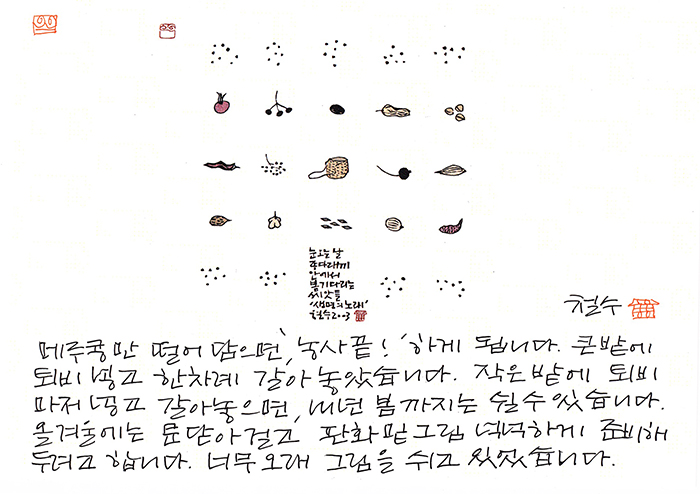 눈오는날
종다래끼
안에서
봄기다리는
씨앗들
'생명의노래'
철수2003
철수
메주콩만 떨어 담으면, '농사끝!' 하게 됩니다. 큰밭에
퇴비 넣고 한차례 갈아 놓았습니다. 작은밭에 퇴비
마저 넣고 갈아놓으면, 내년 봄까지는 쉴수있습니다.
올겨울에는 문닫아걸고 판화 밑그림 넉넉하게 준비해
두려고 합니다. 너무오래 그림을 쉬고 있었습니다.